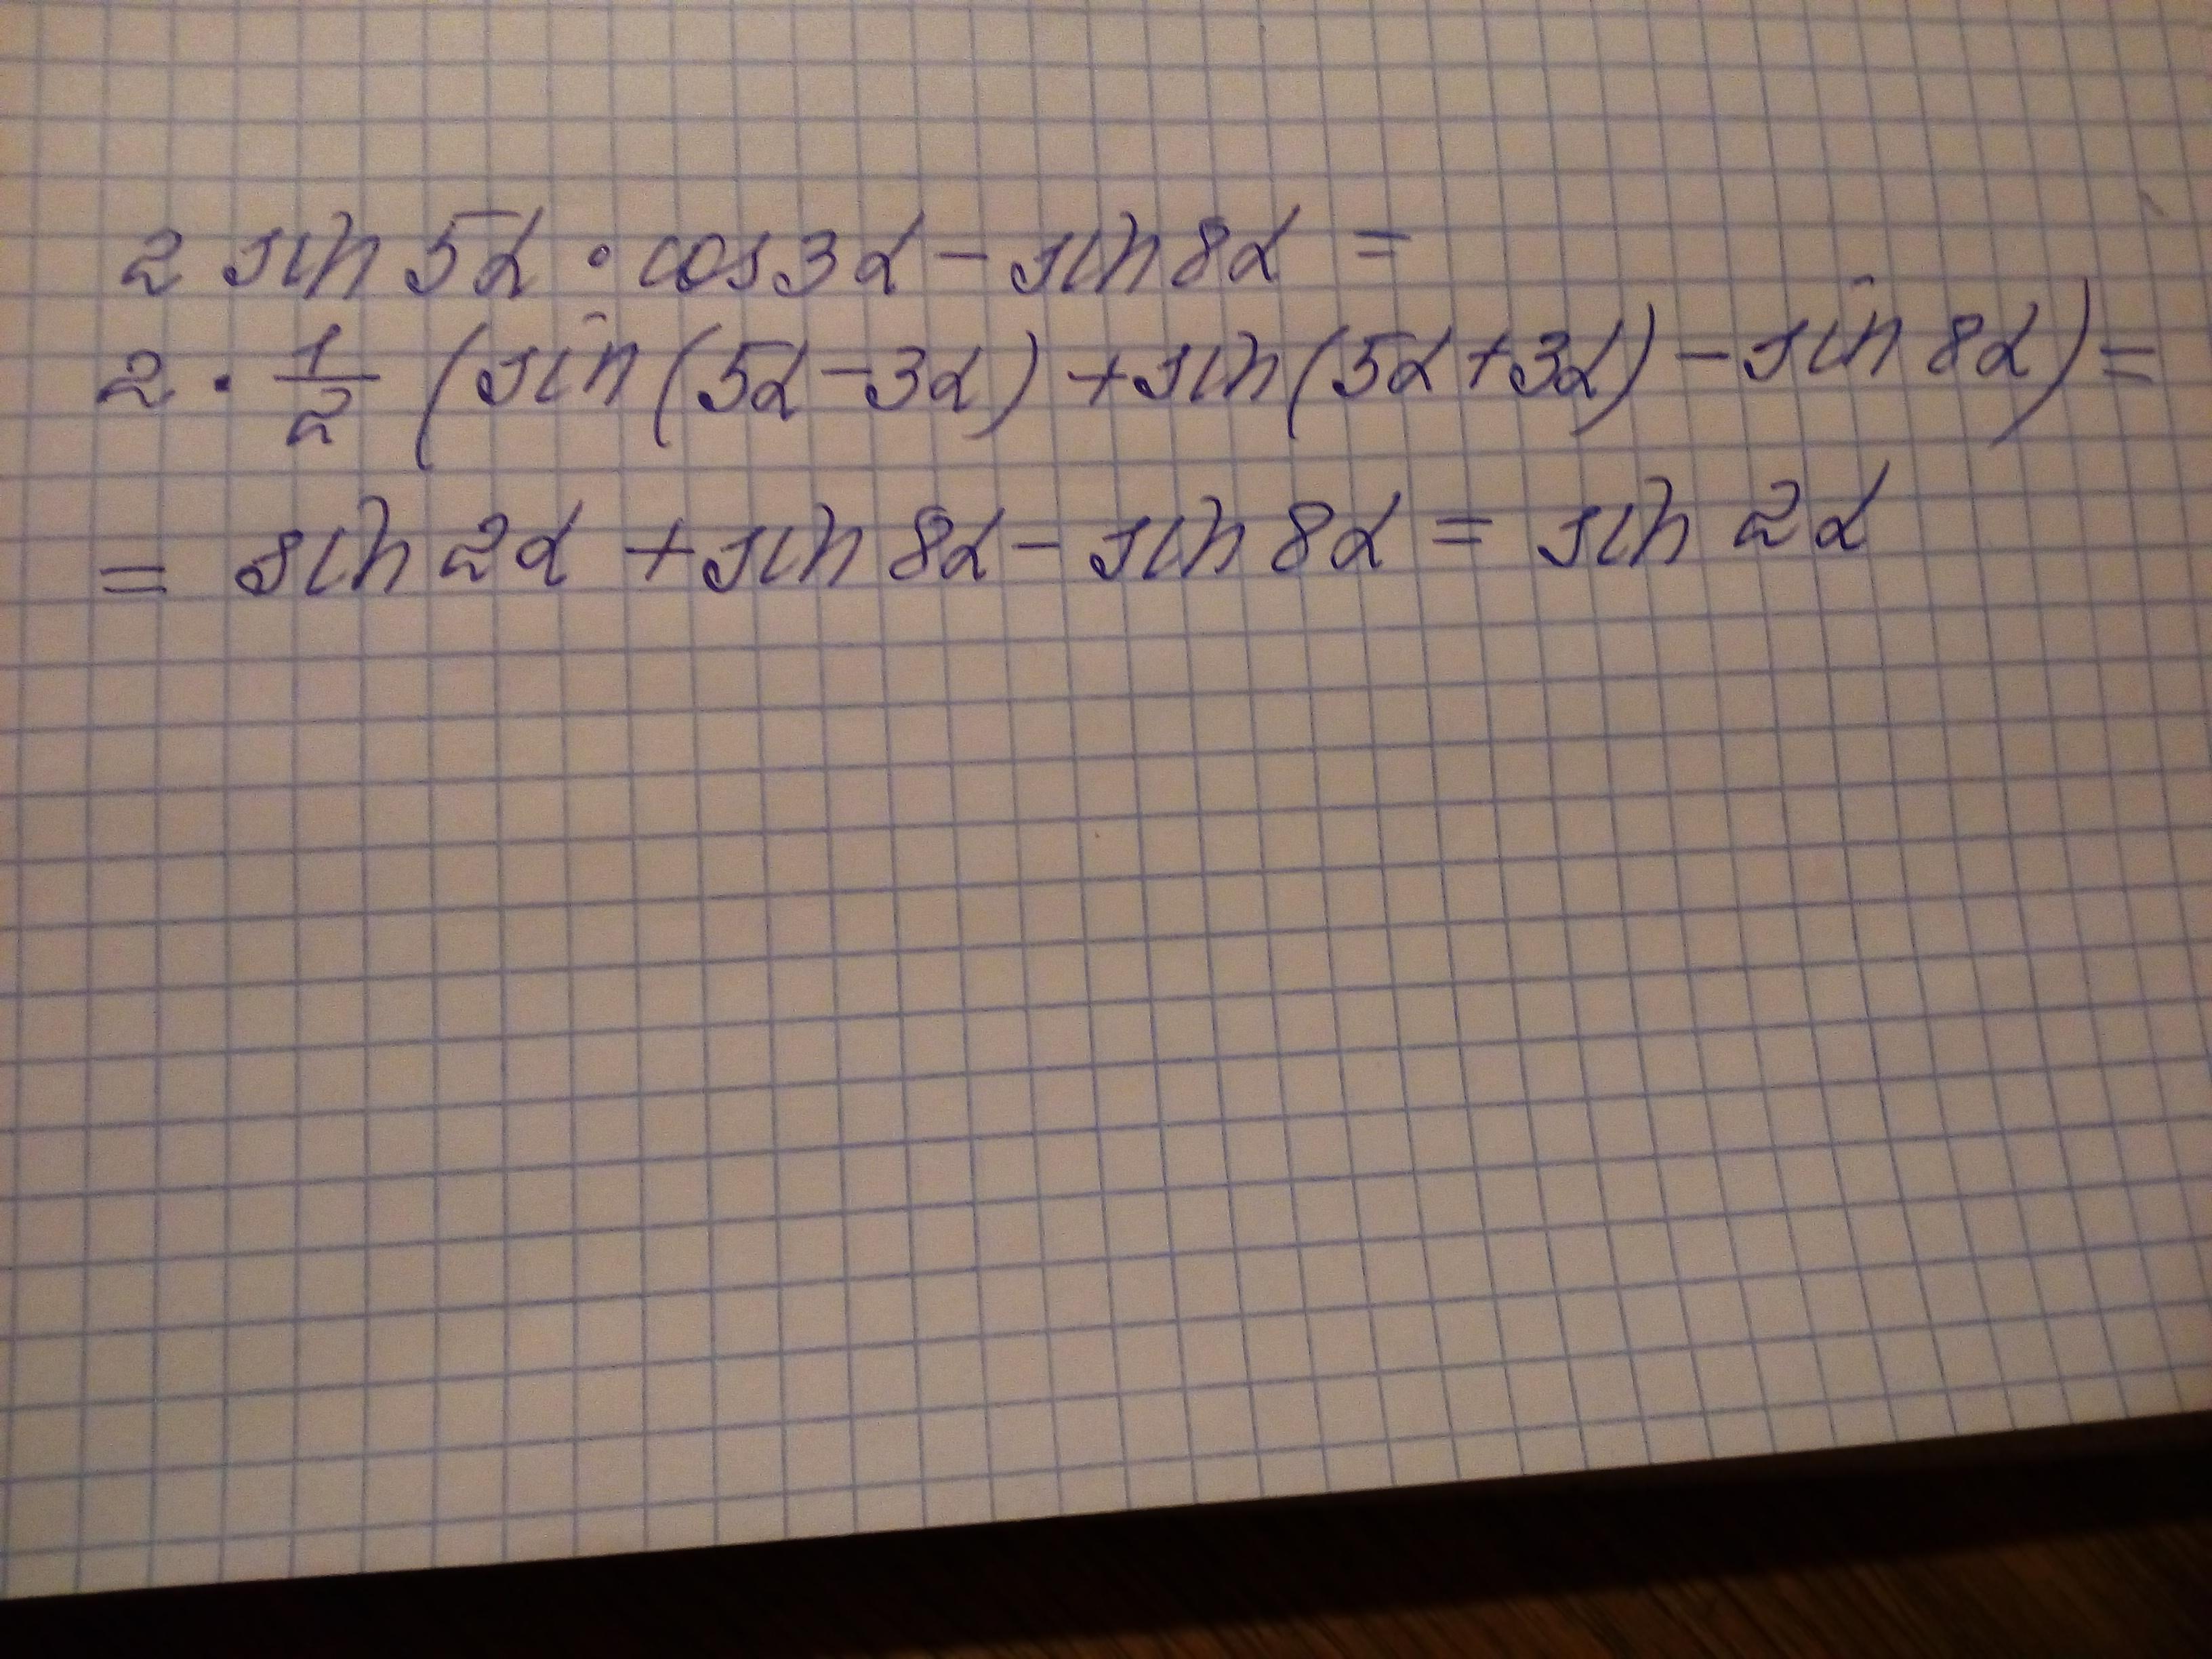 2 sin 5α · cos 3α − sin 8α =
2 · 1/2 (sin (5α − 3α) + sin (5α + 3α) − sin 8α) =
= sin 2α + sin 8α − sin 8α = sin 2α